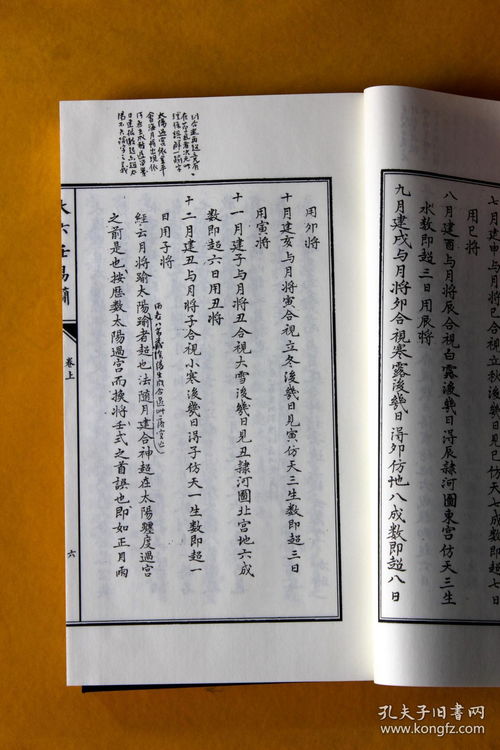 七月建申與月將巳合視立秋後幾日見巳仿天七成數即超七日
用巳將
八月建酉與月將辰合視白露後幾日得辰隷河圖東宮仿天三生
水數即超三日用辰將
九月建戌與月將卯合視寒露後幾日得卯仿地八成數即超八日
用卯將
十月建亥與月將寅合視立冬後幾日見寅仿天三生數即超三日
用寅將
十一月建子與月將丑合視大雪後幾日見丑隷河圖北宮地六成
數即超六日用丑將
十二月建丑與月將子合視小寒後幾日得子仿天一生數即超一
日用子將
經云月將踰太陽踰者超也法隨月建合神超在太陽躔度過宮
之前是也按歴数太陽過宮而換將壬式之首誤也即如正月雨
六壬易簡
卷上
六
孔夫子旧書网
www.kongfz.com